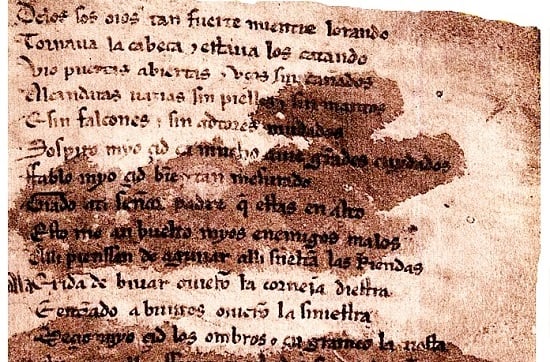 Delos sos oios tan fuerte mientre lorando
Tornaua la cabeça ⁊ estaua los catando
Vio puertas abiertas ⁊ vços sin cañados
Alcandaras uazias sin pielles ⁊ sin mantos
E sin falcones ⁊ sin adtores mudados
Sospiro myo çid ca mucho auie grãdes cuydados
Fablo myo çid bien ⁊ tan mesurado
Grado ati señor padre q̃ estas en alto
Esto me an buelto myos enemigos malos
Alli pienssan de aguijar alli sueltan las Riendas
exida de biuar ouierõ la corneja diestra
E entrãdo a burgos ouierõ la siniestra
Meçio myo çid los ombros ⁊ en grameo la tiesta